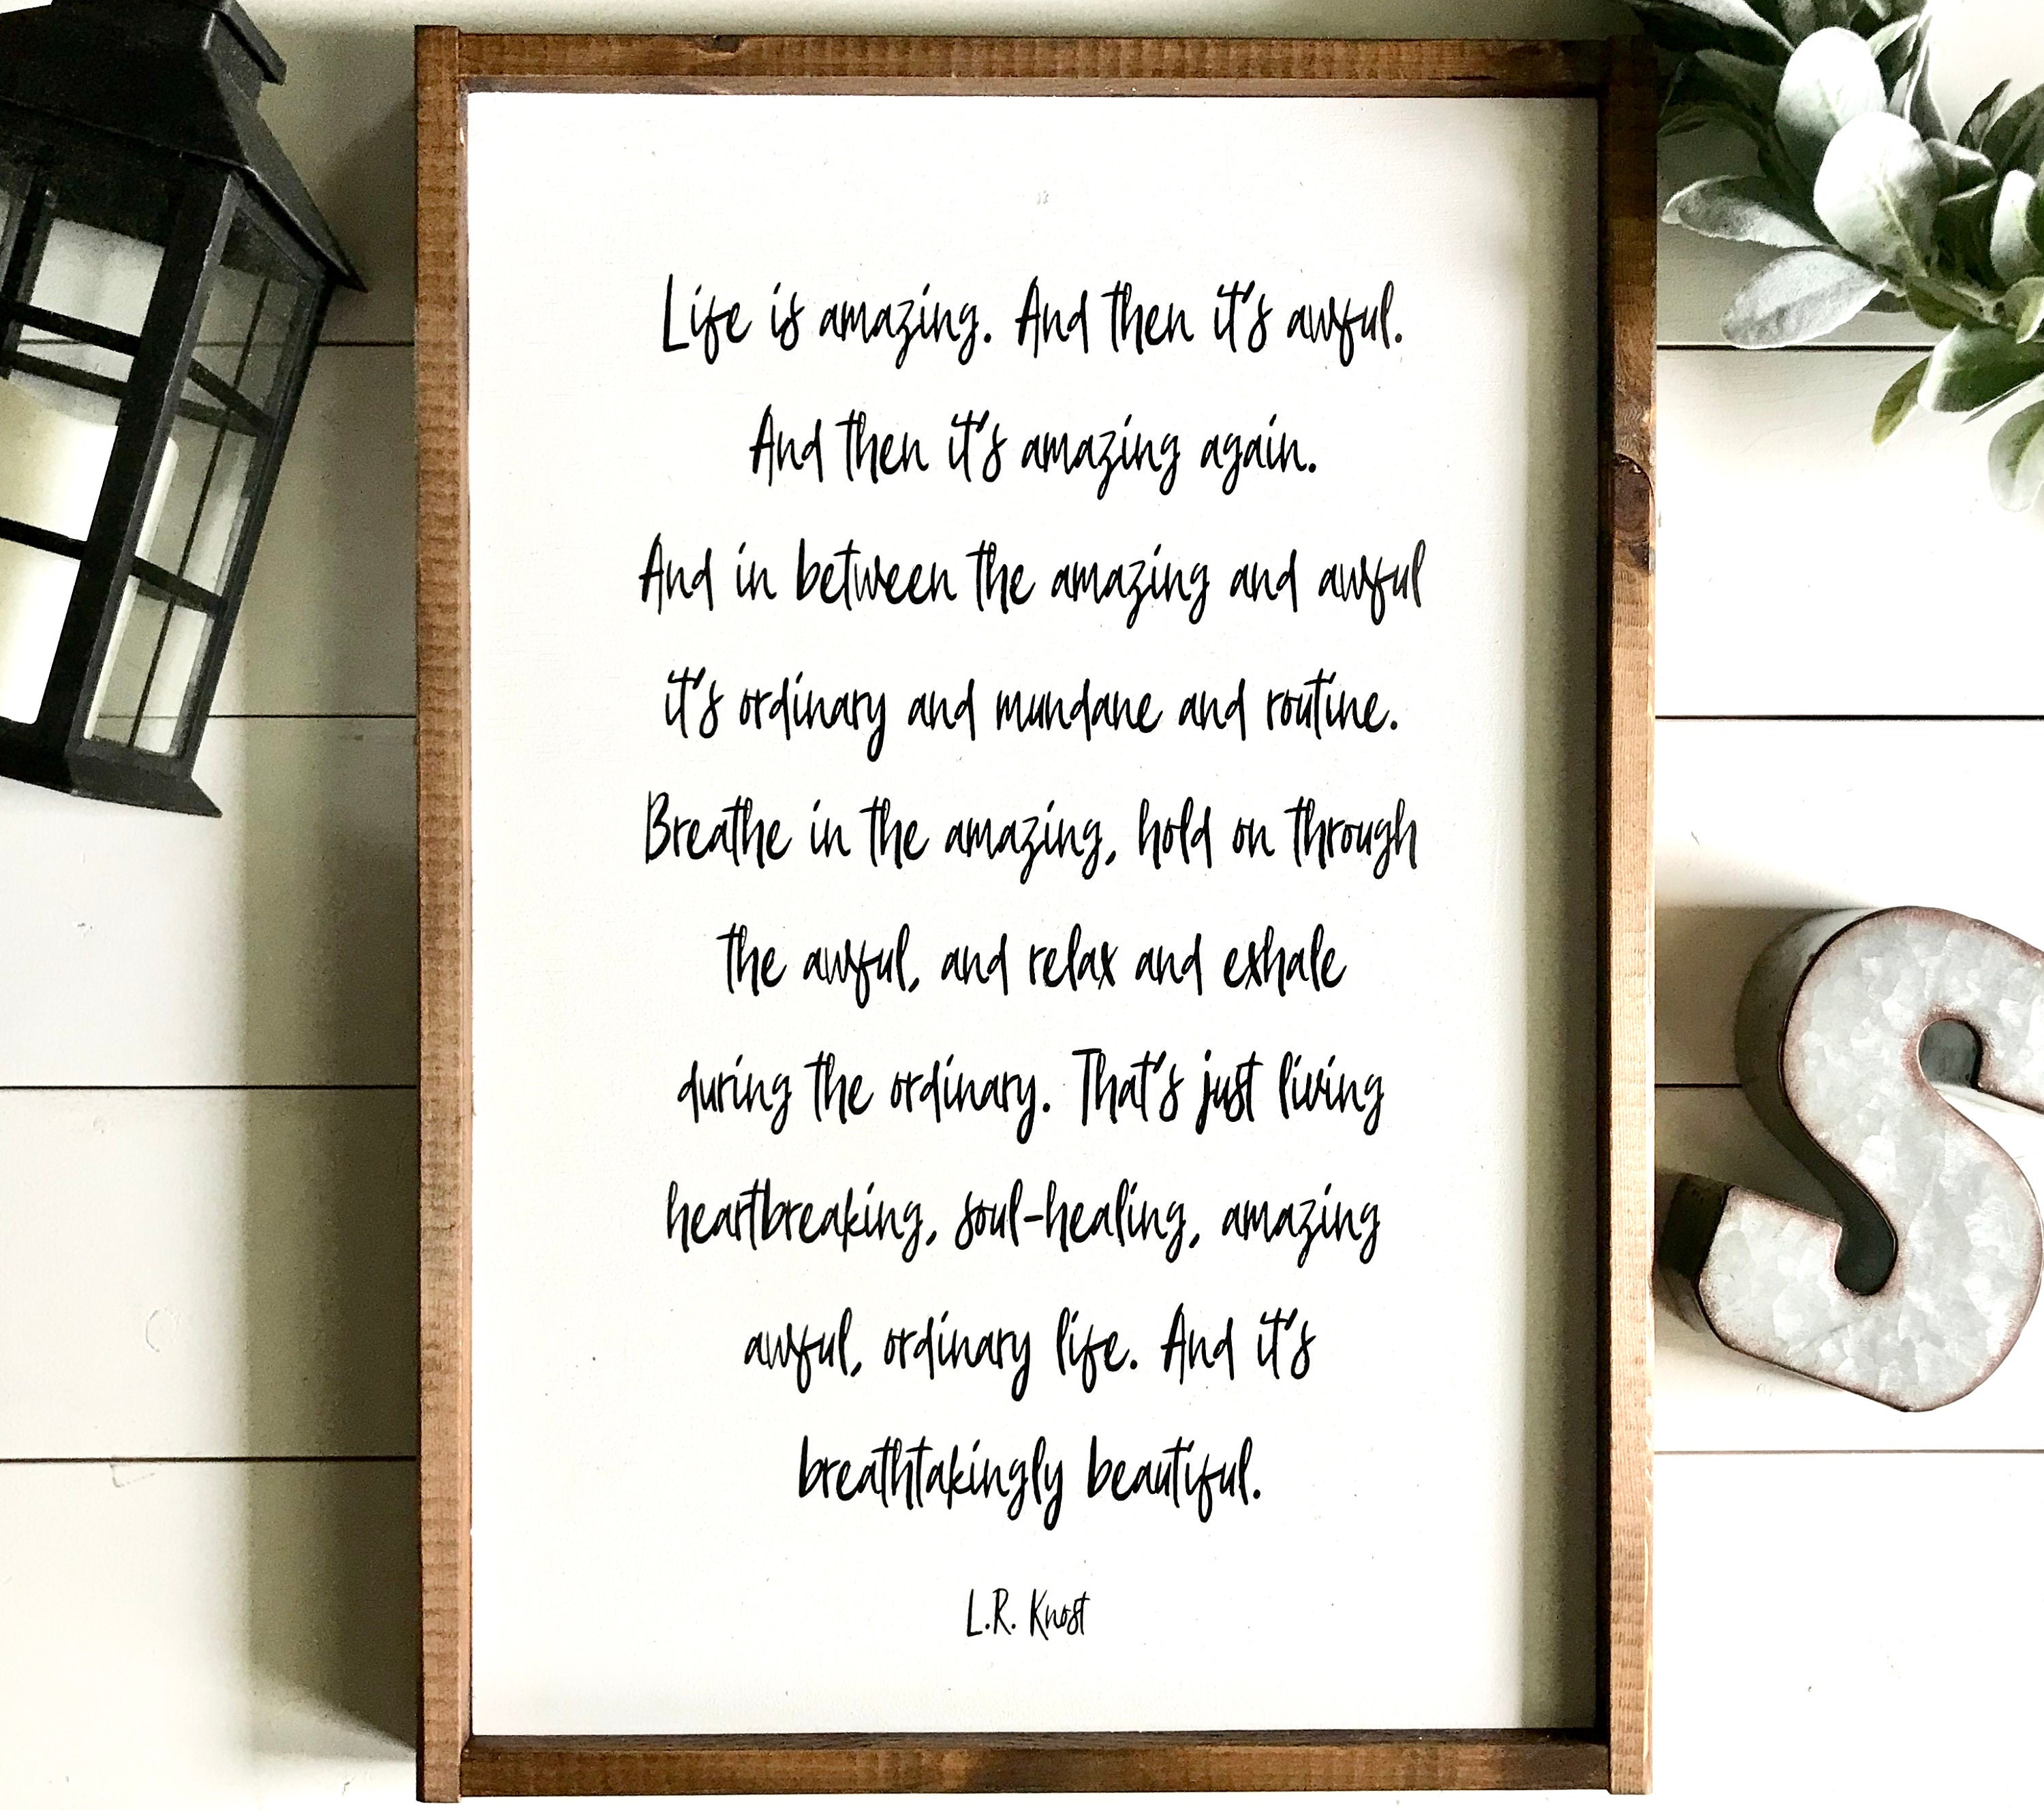 Life is amazing. And then it's awful.
And then it's amazing again.
And in between the amazing and awful
it's ordinary and mundane and routine.
Breathe in the amazing, hold on through
the awful, and relax and exhale
during the ordinary. That's just living
heartbreaking, soul-healing, amazing
awful, ordinary life. And it's
breathtakingly beautiful.
L.R. Knost
S